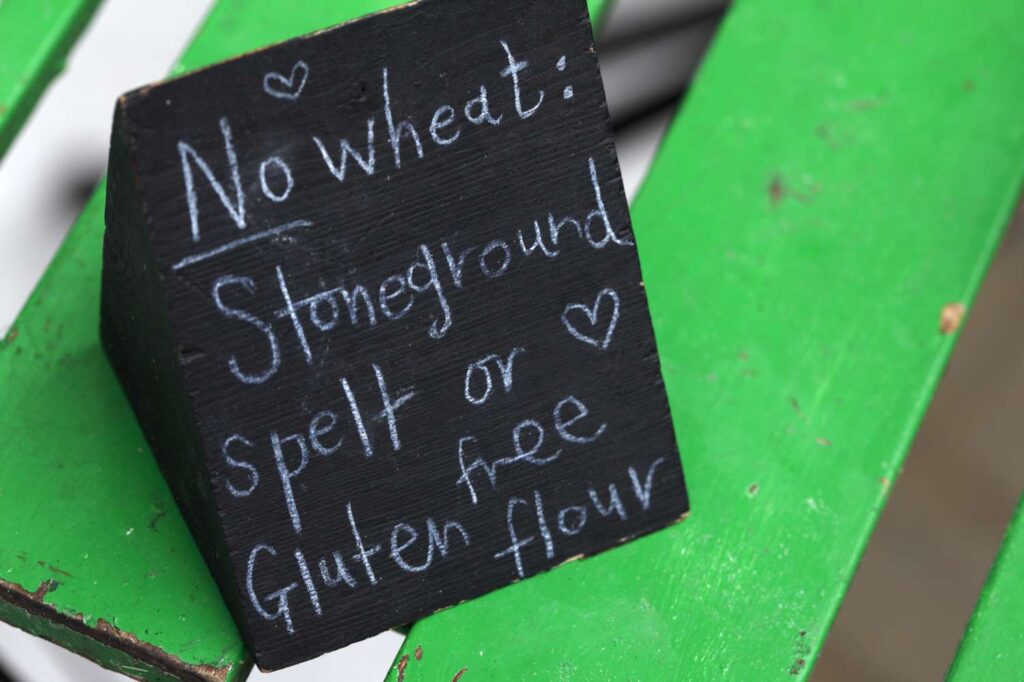 No wheat:
Stoneground
spelt or
free
Gluten flour